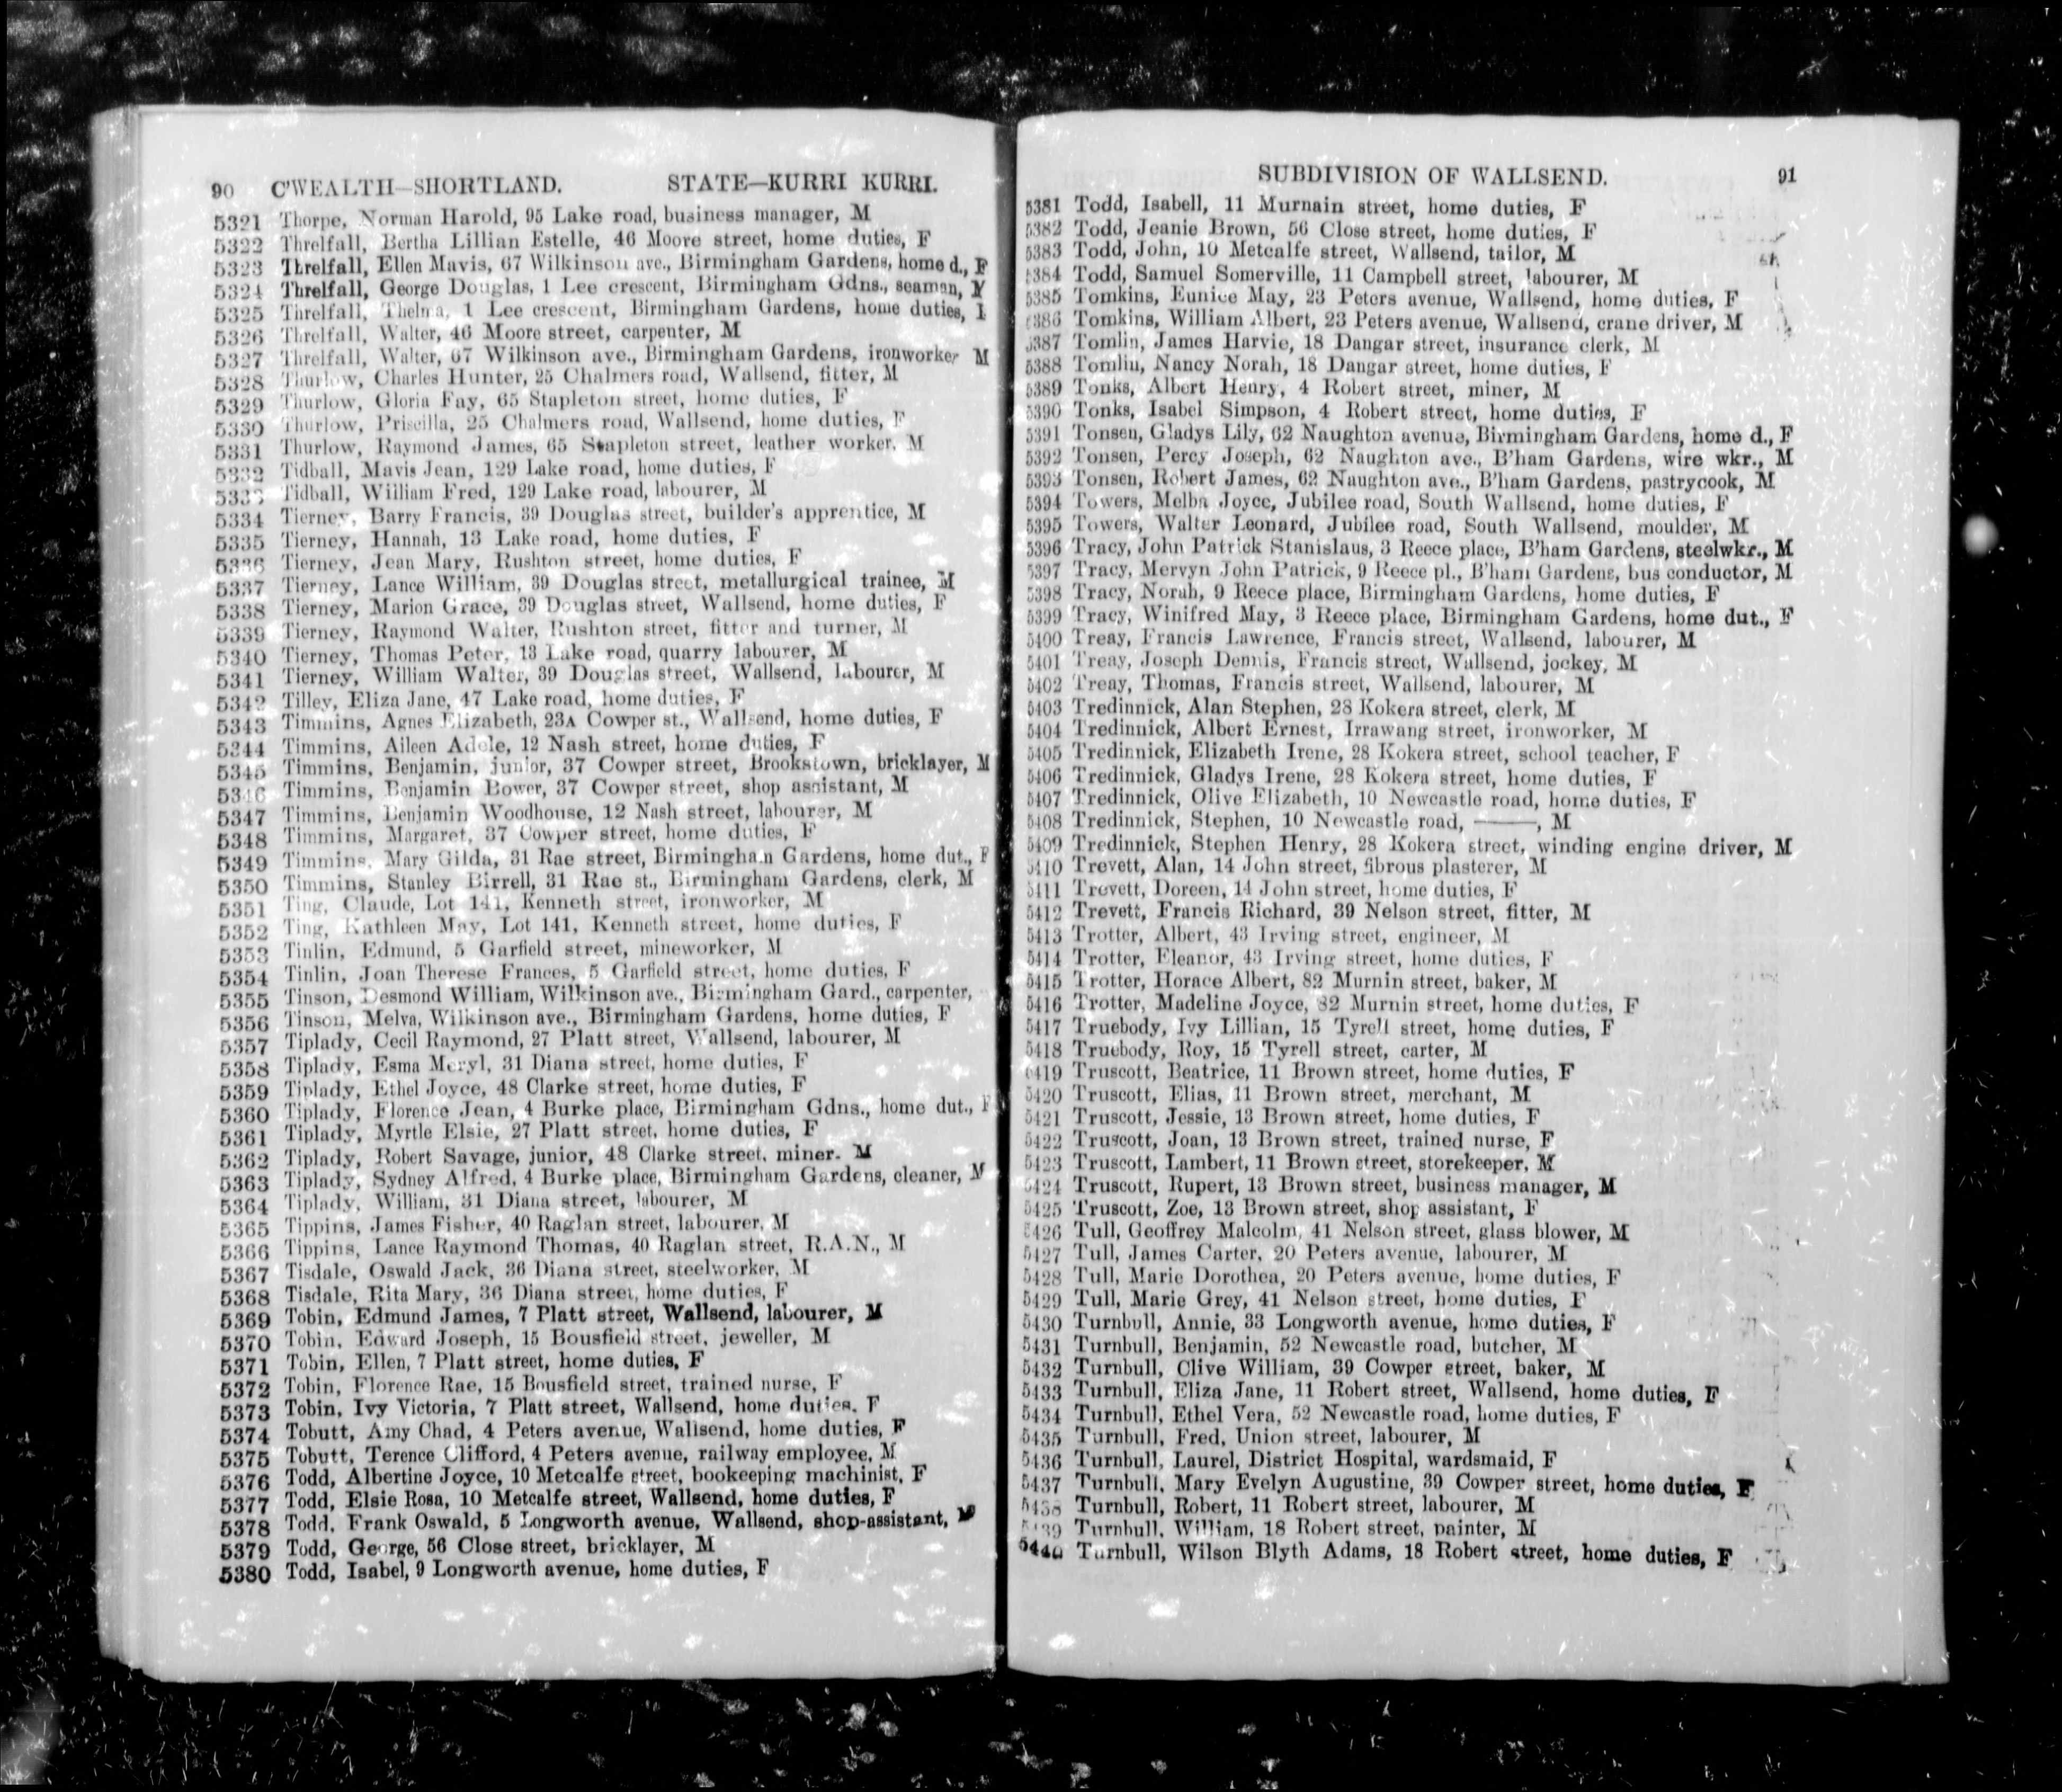 90 C'WEALTH—SHORTLAND. STATE—KURRI KURRI.
5321 Thorpe, Norman Harold, 95 Lake road, business manager, M
5322 Threlfall, Bertha Lillian Estelle, 46 Moore street, home duties, F
5323 Threlfall, Ellen Mavis, 67 Wilkinson ave., Birmingham Gardens, home d., F
5324 Threlfall, George Douglas, 1 Lee crescent, Birmingham Gdns., seaman, M
5325 Threlfall, Thelma, 1 Lee crescent, Birmingham Gardens, home duties,
5326 Threlfall, Walter, 46 Moore street, carpenter, M
5327 Threlfall, Walter, 67 Wilkinson ave., Birmingham Gardens, ironworker M
5328 Thurlow, Charles Hunter, 25 Chalmers road, Wallsend, fitter, M
5329 Thurlow, Gloria Fay, 65 Stapleton street, home duties, F
5330 Thurlow, Priscilla, 25 Chalmers road, Wallsend, home duties, F
5331 Thurlow, Raymond James, 65 Stapleton street, leather worker, M
5332 Tidball, Mavis Jean, 129 Lake road, home duties, F
5333 Tidball, William Fred, 129 Lake road, labourer, M
5334 Tierney, Barry Francis, 39 Douglas street, builder's apprentice, M
5335 Tierney, Hannah, 13 Lake road, home duties, F
5336 Tierney, Jean Mary, Rushton street, home duties, F
5337 Tierney, Lance William, 39 Douglas street, metallurgical trainee, M
5338 Tierney, Marion Grace, 39 Douglas street, Wallsend, home duties, F
5339 Tierney, Raymond Walter, Rushton street, fitter and turner, M
5340 Tierney, Thomas Peter, 13 Lake road, quarry labourer, M
5341 Tierney, William Walter, 39 Douglas street, Wallsend, labourer, M
5342 Tilley, Eliza Jane, 47 Lake road, home duties, F
5343 Timmins, Agnes Elizabeth, 23A Cowper st., Wallsend, home duties, F
5344 Timmins, Aileen Adele, 12 Nash street, home duties, F
5345 Timmins, Benjamin, junior, 37 Cowper street, Brookstown, bricklayer, M
5346 Timmins, Benjamin Bower, 37 Cowper street, shop assistant, M
5347 Timmins, Benjamin Woodhouse, 12 Nash street, labourer, M
5348 Timmins, Margaret, 37 Cowper street, home duties, F
5349 Timmins, Mary Gilda, 31 Rae street, Birmingham Gardens, home dut., F
5350 Timmins, Stanley Birrell, 31 Rae st., Birmingham Gardens, clerk, M
5351 Ting, Claude, Lot 141, Kenneth street, ironworker, M
5352 Ting, Kathleen May, Lot 141, Kenneth street, home duties, F
5353 Tinlin, Edmund, 5 Garfield street, mineworker, M
5354 Tinlin, Joan Therese Frances, 5 Garfield street, home duties, F
5355 Tinson, Desmond William, Wilkinson ave., Birmingham Gard., carpenter,
5356 Tinson, Melva, Wilkinson ave., Birmingham Gardens, home duties, F
5357 Tiplady, Cecil Raymond, 27 Platt street, Wallsend, labourer, M
5358 Tiplady, Esma Meryl, 31 Diana street, home duties, F
5359 Tiplady, Ethel Joyce, 48 Clarke street, home duties, F
5360 Tiplady, Florence Jean, 4 Burke place, Birmingham Gdns., home dut., F
5361 Tiplady, Myrtle Elsie, 27 Platt street, home duties, F
5362 Tiplady, Robert Savage, junior, 48 Clarke street, miner. M
5363 Tiplady, Sydney Alfred, 4 Burke place, Birmingham Gardens, cleaner, M
5364 Tiplady, William, 31 Diana street, labourer, M
5365 Tippins, James Fisher, 40 Raglan street, labourer, M
5366 Tippins, Lance Raymond Thomas, 40 Raglan street, R.A.N., M
5367 Tisdale, Oswald Jack, 36 Diana street, steelworker, M
5368 Tisdale, Rita Mary, 36 Diana street, home duties, F
5369 Tobin, Edmund James, 7 Platt street, Wallsend, labourer, M
5370 Tobin, Edward Joseph, 15 Bousfield street, jeweller, M
5371 Tobin, Ellen, 7 Platt street, home duties, F
5372 Tobin, Florence Rae, 15 Bousfield street, trained nurse, F
5373 Tobin, Ivy Victoria, 7 Platt street, Wallsend, home duties, F
5374 Tobutt, Amy Chad, 4 Peters avenue, Wallsend, home duties, F
5375 Tobutt, Terence Clifford, 4 Peters avenue, railway employee, M
5376 Todd, Albertine Joyce, 10 Metcalfe street, bookeeping machinist, F
5377 Todd, Elsie Rosa, 10 Metcalfe street, Wallsend, home duties, F
5378 Todd, Frank Oswald, 5 Longworth avenue, Wallsend, shop-assistant, M
5379 Todd, George, 56 Close street, bricklayer, M
5380 Todd, Isabel, 9 Longworth avenue, home duties, F
SUBDIVISION OF WALLSEND. 91
5381 Todd, Isabell, 11 Murnain street, home duties, F
5382 Todd, Jeanie Brown, 56 Close street, home duties, F
5383 Todd, John, 10 Metcalfe street, Wallsend, tailor, M
5384 Todd, Samuel Somerville, 11 Campbell street, labourer, M
5385 Tomkins, Eunice May, 23 Peters avenue, Wallsend, home duties, F
5386 Tomkins, William Albert, 23 Peters avenue, Wallsend, crane driver, M
5387 Tomlin, James Harvie, 18 Dangar street, insurance clerk, M
5388 Tomlin, Nancy Norah, 18 Dangar street, home duties, F
5389 Tonks, Albert Henry, 4 Robert street, miner, M
5390 Tonks, Isabel Simpson, 4 Robert street, home duties, F
5391 Tonsen, Gladys Lily, 62 Naughton avenue, Birmingham Gardens, home d., F
5392 Tonsen, Percy Joseph, 62 Naughton ave., B'ham Gardens, wire wkr., M
5393 Tonsen, Robert James, 62 Naughton ave., B'ham Gardens, pastrycook, M
5394 Towers, Melba Joyce, Jubilee road, South Wallsend, home duties, F
5395 Towers, Walter Leonard, Jubilee road, South Wallsend, moulder, M
5396 Tracy, John Patrick Stanislaus, 3 Reece place, B'ham Gardens, steelwkr., M
5397 Tracy, Mervyn John Patrick, 9 Reece pl., B'ham Gardens, bus conductor, M
5398 Tracy, Norah, 9 Reece place, Birmingham Gardens, home duties, F
5399 Tracy, Winifred May, 3 Reece place, Birmingham Gardens, home dut., F
5400 Treay, Francis Lawrence, Francis street, Wallsend, labourer, M
5401 Treay, Joseph Dennis, Francis street, Wallsend, jockey, M
5402 Treay, Thomas, Francis street, Wallsend, labourer, M
5403 Tredinnick, Alan Stephen, 28 Kokera street, clerk, M
5404 Tredinnick, Albert Ernest, Irrawang street, ironworker, M
5405 Tredinnick, Elizabeth Irene, 28 Kokera street, school teacher, F
5406 Tredinnick, Gladys Irene, 28 Kokera street, home duties, F
5407 Tredinnick, Olive Elizabeth, 10 Newcastle road, home duties, F
5408 Tredinnick, Stephen, 10 Newcastle road, ———, M
5409 Tredinnick, Stephen Henry, 28 Kokera street, winding engine driver, M
5410 Trevett, Alan, 14 John street, fibrous plasterer, M
5411 Trevett, Doreen, 14 John street, home duties, F
5412 Trevett, Francis Richard, 39 Nelson street, fitter, M
5413 Trotter, Albert, 43 Irving street, engineer, M
5414 Trotter, Eleanor, 43 Irving street, home duties, F
5415 Trotter, Horace Albert, 82 Murnin street, baker, M
5416 Trotter, Madeline Joyce, 82 Murnin street, home duties, F
5417 Truebody, Ivy Lillian, 15 Tyrell street, home duties, F
5418 Truebody, Roy, 15 Tyrell street, carter, M
5419 Truscott, Beatrice, 11 Brown street, home duties, F
5420 Truscott, Elias, 11 Brown street, merchant, M
5421 Truscott, Jessie, 13 Brown street, home duties, F
5422 Truscott, Joan, 13 Brown street, trained nurse, F
5423 Truscott, Lambert, 11 Brown street, storekeeper, M
5424 Truscott, Rupert, 13 Brown street, business manager, M
5425 Truscott, Zoe, 13 Brown street, shop assistant, F
5426 Tull, Geoffrey Malcolm, 41 Nelson street, glass blower, M
5427 Tull, James Carter, 20 Peters avenue, labourer, M
5428 Tull, Marie Dorothea, 20 Peters avenue, home duties, F
5429 Tull, Marie Grey, 41 Nelson street, home duties, F
5430 Turnbull, Annie, 33 Longworth avenue, home duties, F
5431 Turnbull, Benjamin, 52 Newcastle road, butcher, M
5432 Turnbull, Clive William, 39 Cowper street, baker, M
5433 Turnbull, Eliza Jane, 11 Robert street, Wallsend, home duties, F
5434 Turnbull, Ethel Vera, 52 Newcastle road, home duties, F
5435 Turnbull, Fred, Union street, labourer, M
5436 Turnbull, Laurel, District Hospital, wardsmaid, F
5437 Turnbull, Mary Evelyn Augustine, 39 Cowper street, home duties, F
5438 Turnbull, Robert, 11 Robert street, labourer, M
5439 Turnbull, William, 18 Robert street, painter, M
5440 Turnbull, Wilson Blyth Adams, 18 Robert street, home duties, F